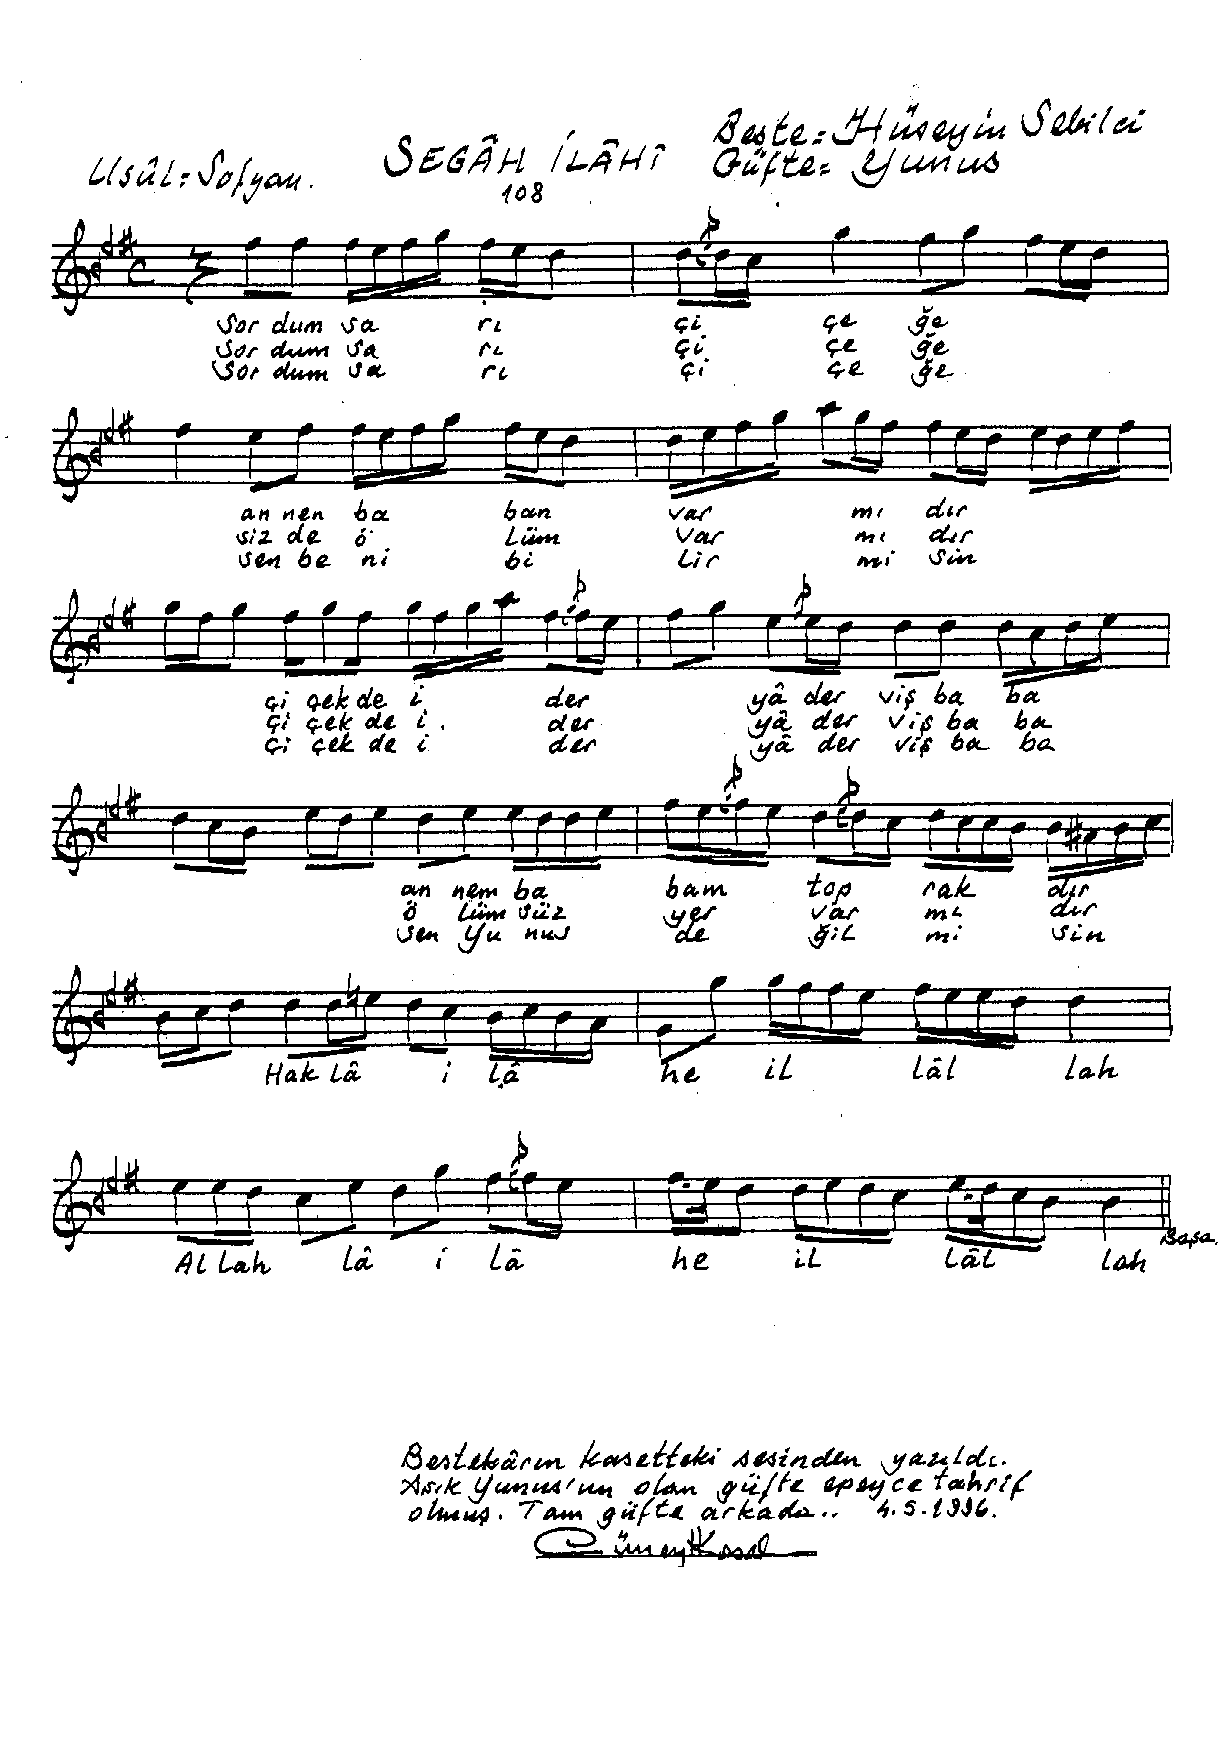 Usûl=Sofyan.
SEGÂH İLÂHÎ
108
Beste=Hüseyin Sebilci
Güfte=Yunus
Sor dum sa rı çi çe ğe
Sor dum sa rı çi çe ğe
Sor dum sa rı çi çe ğe
an nen ba ban var mı dır
siz de ö lüm var mı dır
sen be ni bi lir mi sin
çi çek de i der yâ der viş ba ba
çi çek de i der yâ der viş ba ba
çi çek de i der yâ der viş ba ba
an nem ba bam top rak dır
ö lüm süz yer var mı dır
sen Yu nus de ğil mi sin
Hak lâ i lâ he il lâl lah
Al lah lâ i lâ he il lâl lah
Başa.
Bestekârın kasetteki sesinden yazıldı.
Aşık Yunus'un olan güfte epeyce tahrif
olmuş. Tam güfte arkada.. 4.5.1996.